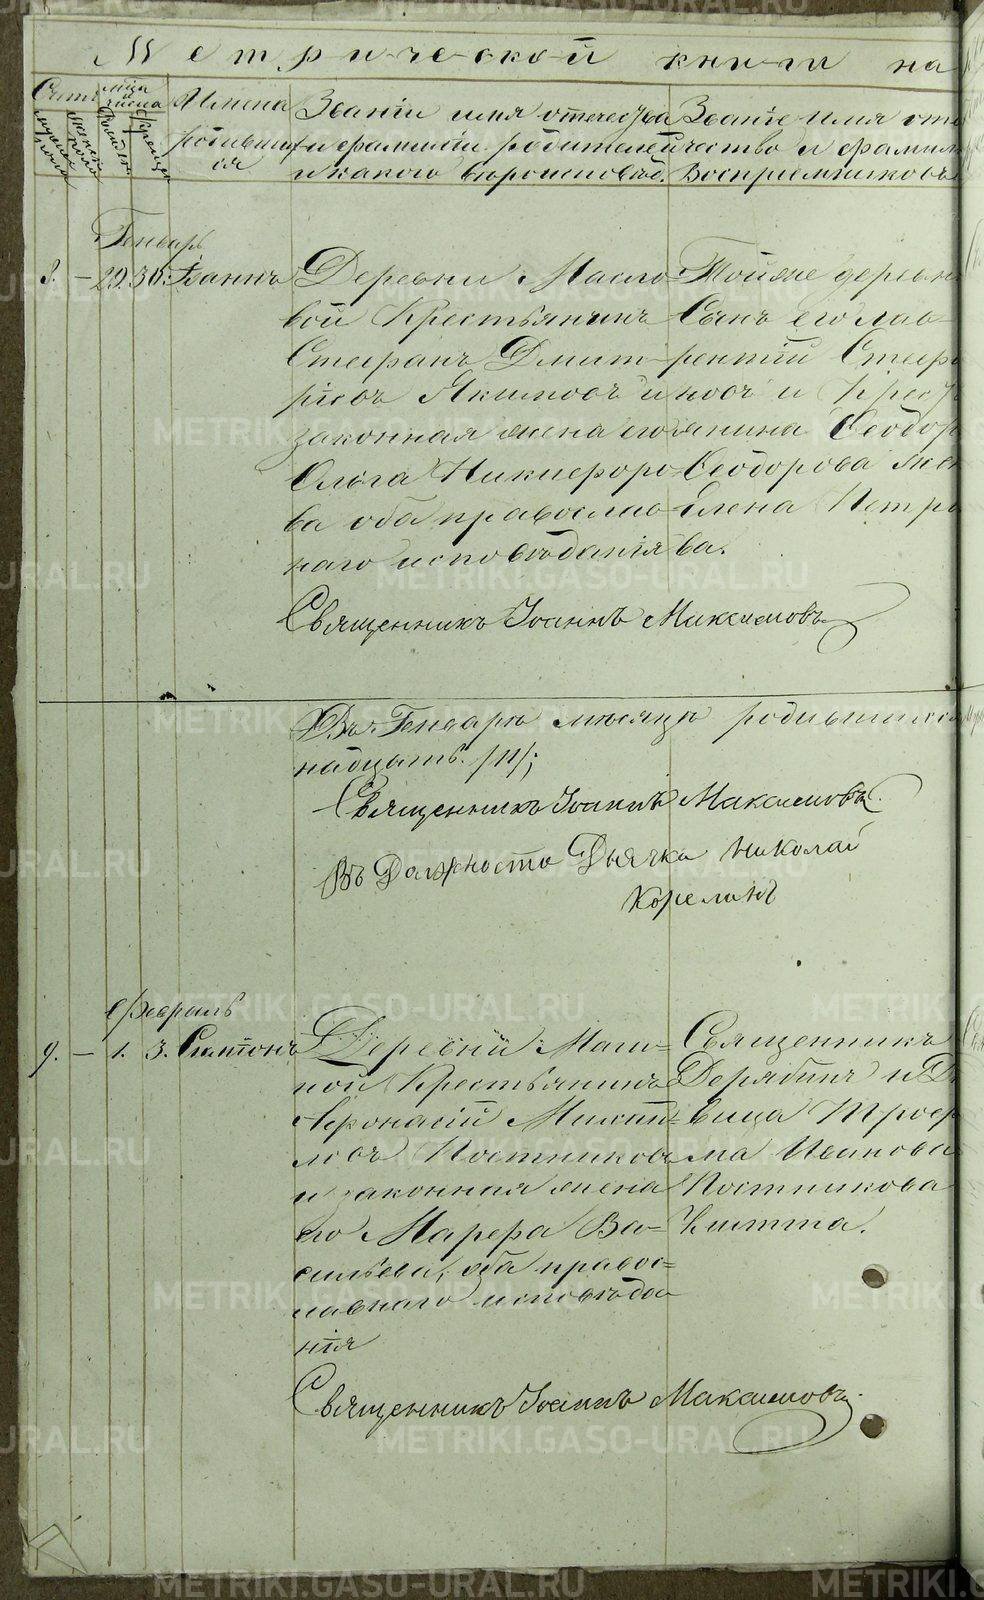 Метрической книги на
Счетъ
мѣца и числа
Имена родившихся
Званіе имя отечество и фамиліи родителей и какого вероисповѣд.
Званіе имя оте чество и фамилі Воспріемниковъ
Генварь
8. – 29. 30. Іоаннъ
Деревни Масло-
вой Крестьянинъ
Стефанъ Дмит-
ріевъ Якимовъ и
законная жена его
Ольга Никифоро-
ва оба православ-
наго исповѣданія
Тойже деревн
Сынъ его Лав-
рентій Стеф
новъ и Крест
янина Ѳеодор
Ѳеодорова жен
Елена Петро
ва.
Священникъ Іоаннъ Максимовъ
Въ Генварѣ мѣсяцѣ родившихся
надцать /11/;
Священникъ Іоаннъ Максимовъ.
Въ Должности Дьячка Николай
Корелинъ
Февраль
9. – 1. 3. Симеонъ
Деревни Масло-
вой Крестьянинъ
Афонасій Михай-
ловъ Постниковъ
и законная жена
его Марфа Ва-
сильева, оба правос-
лавнаго исповѣда-
нія
Священникъ
Дерябинъ и Дѣ
вица
ма Иванова
Постникова
Священникъ Іоаннъ Максимовъ.
METRIKI.GASO-URAL.RU